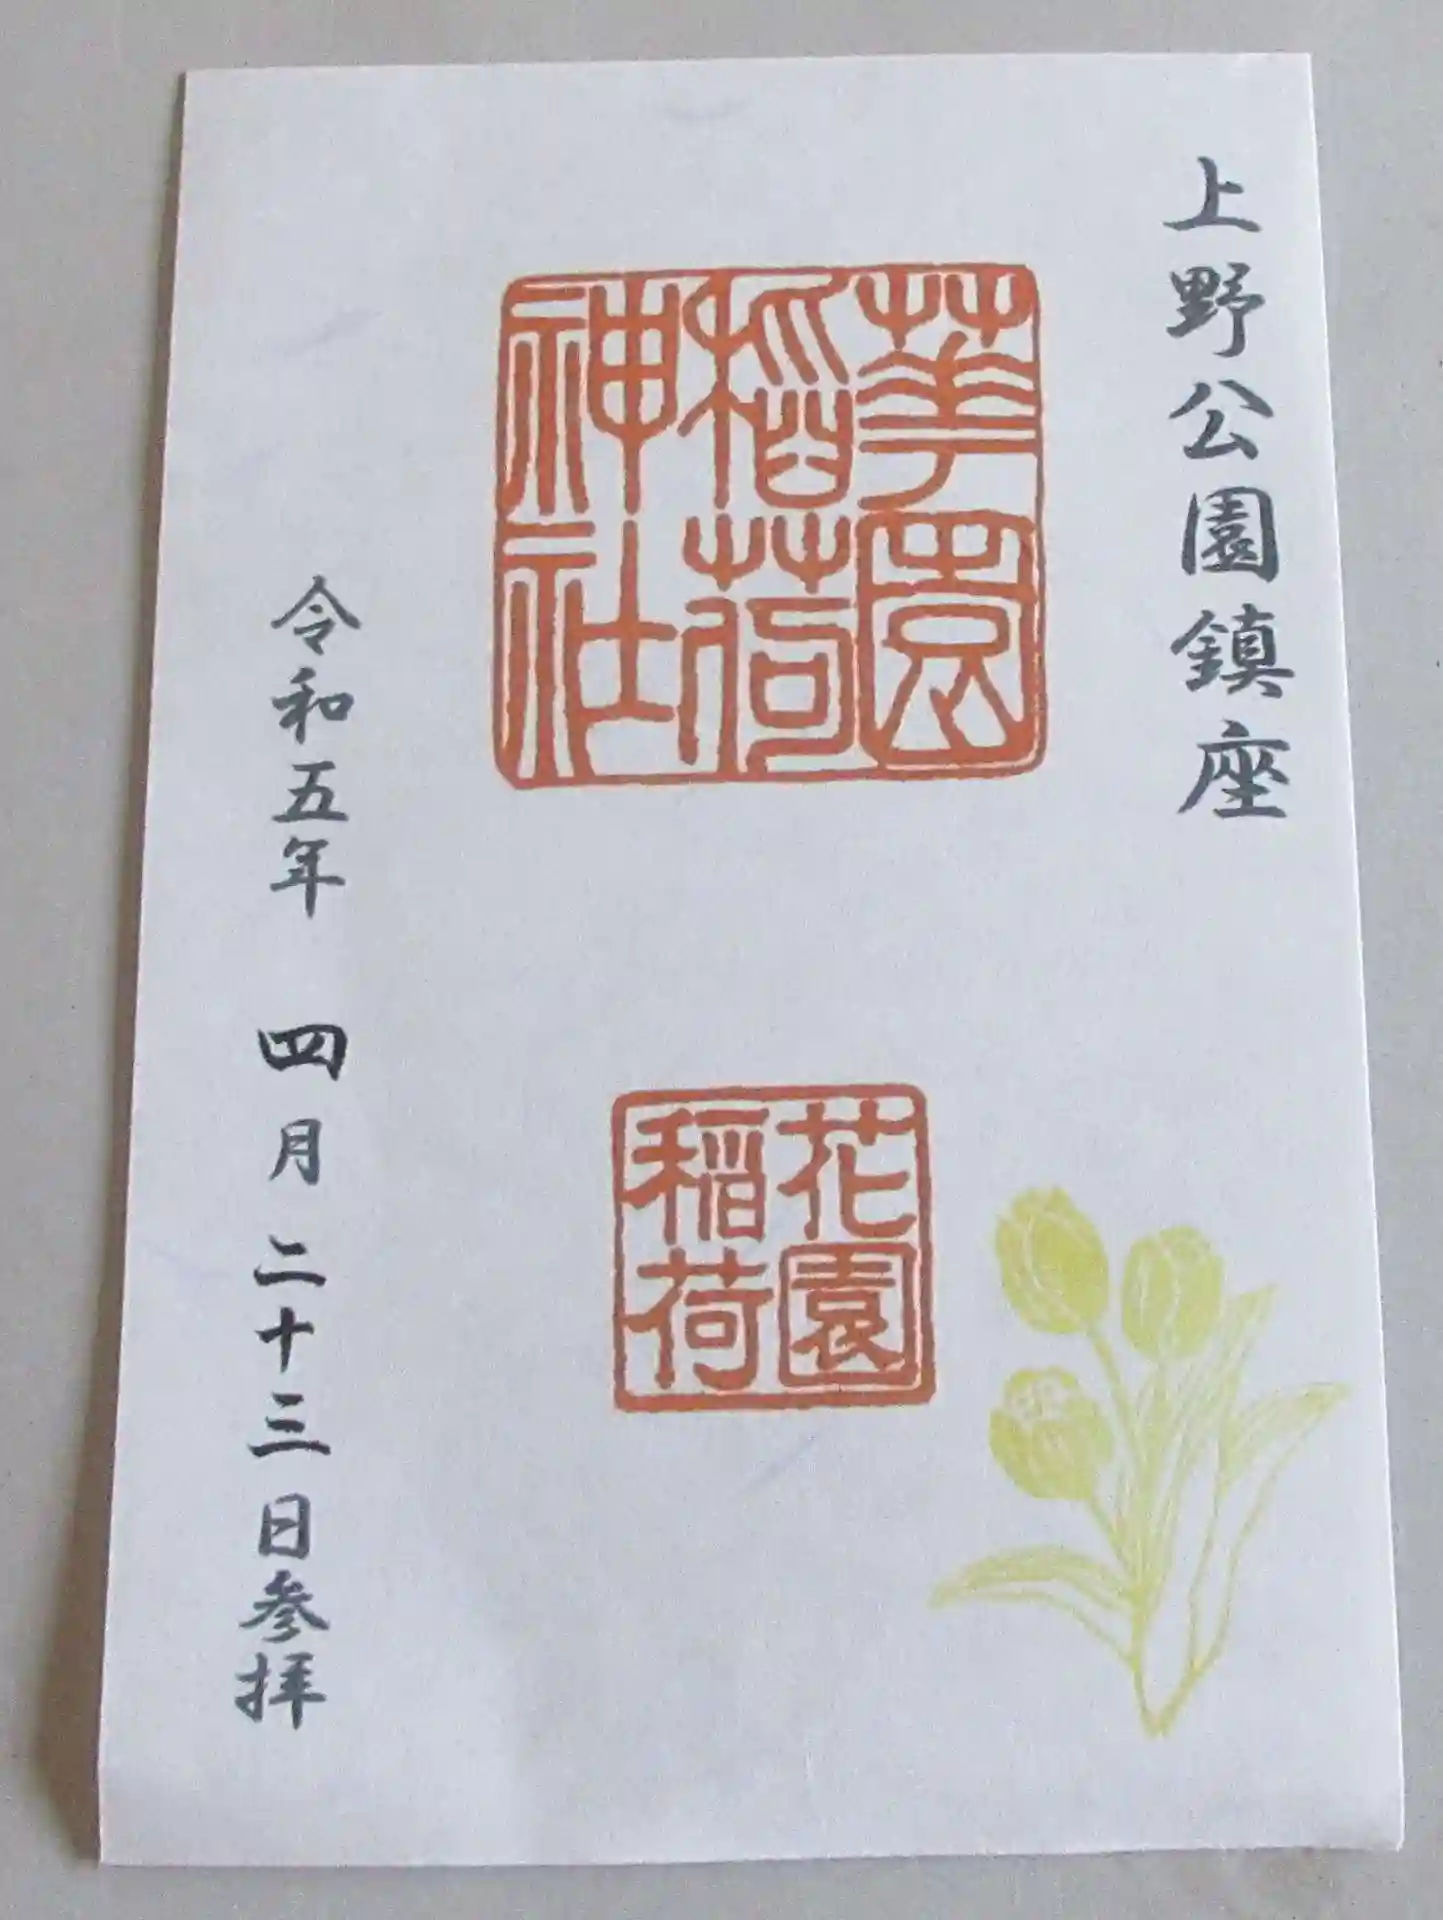 上野公園鎮座
華園
稲荷
神社
花園
稲荷
令和五年 四月二十三日参拝